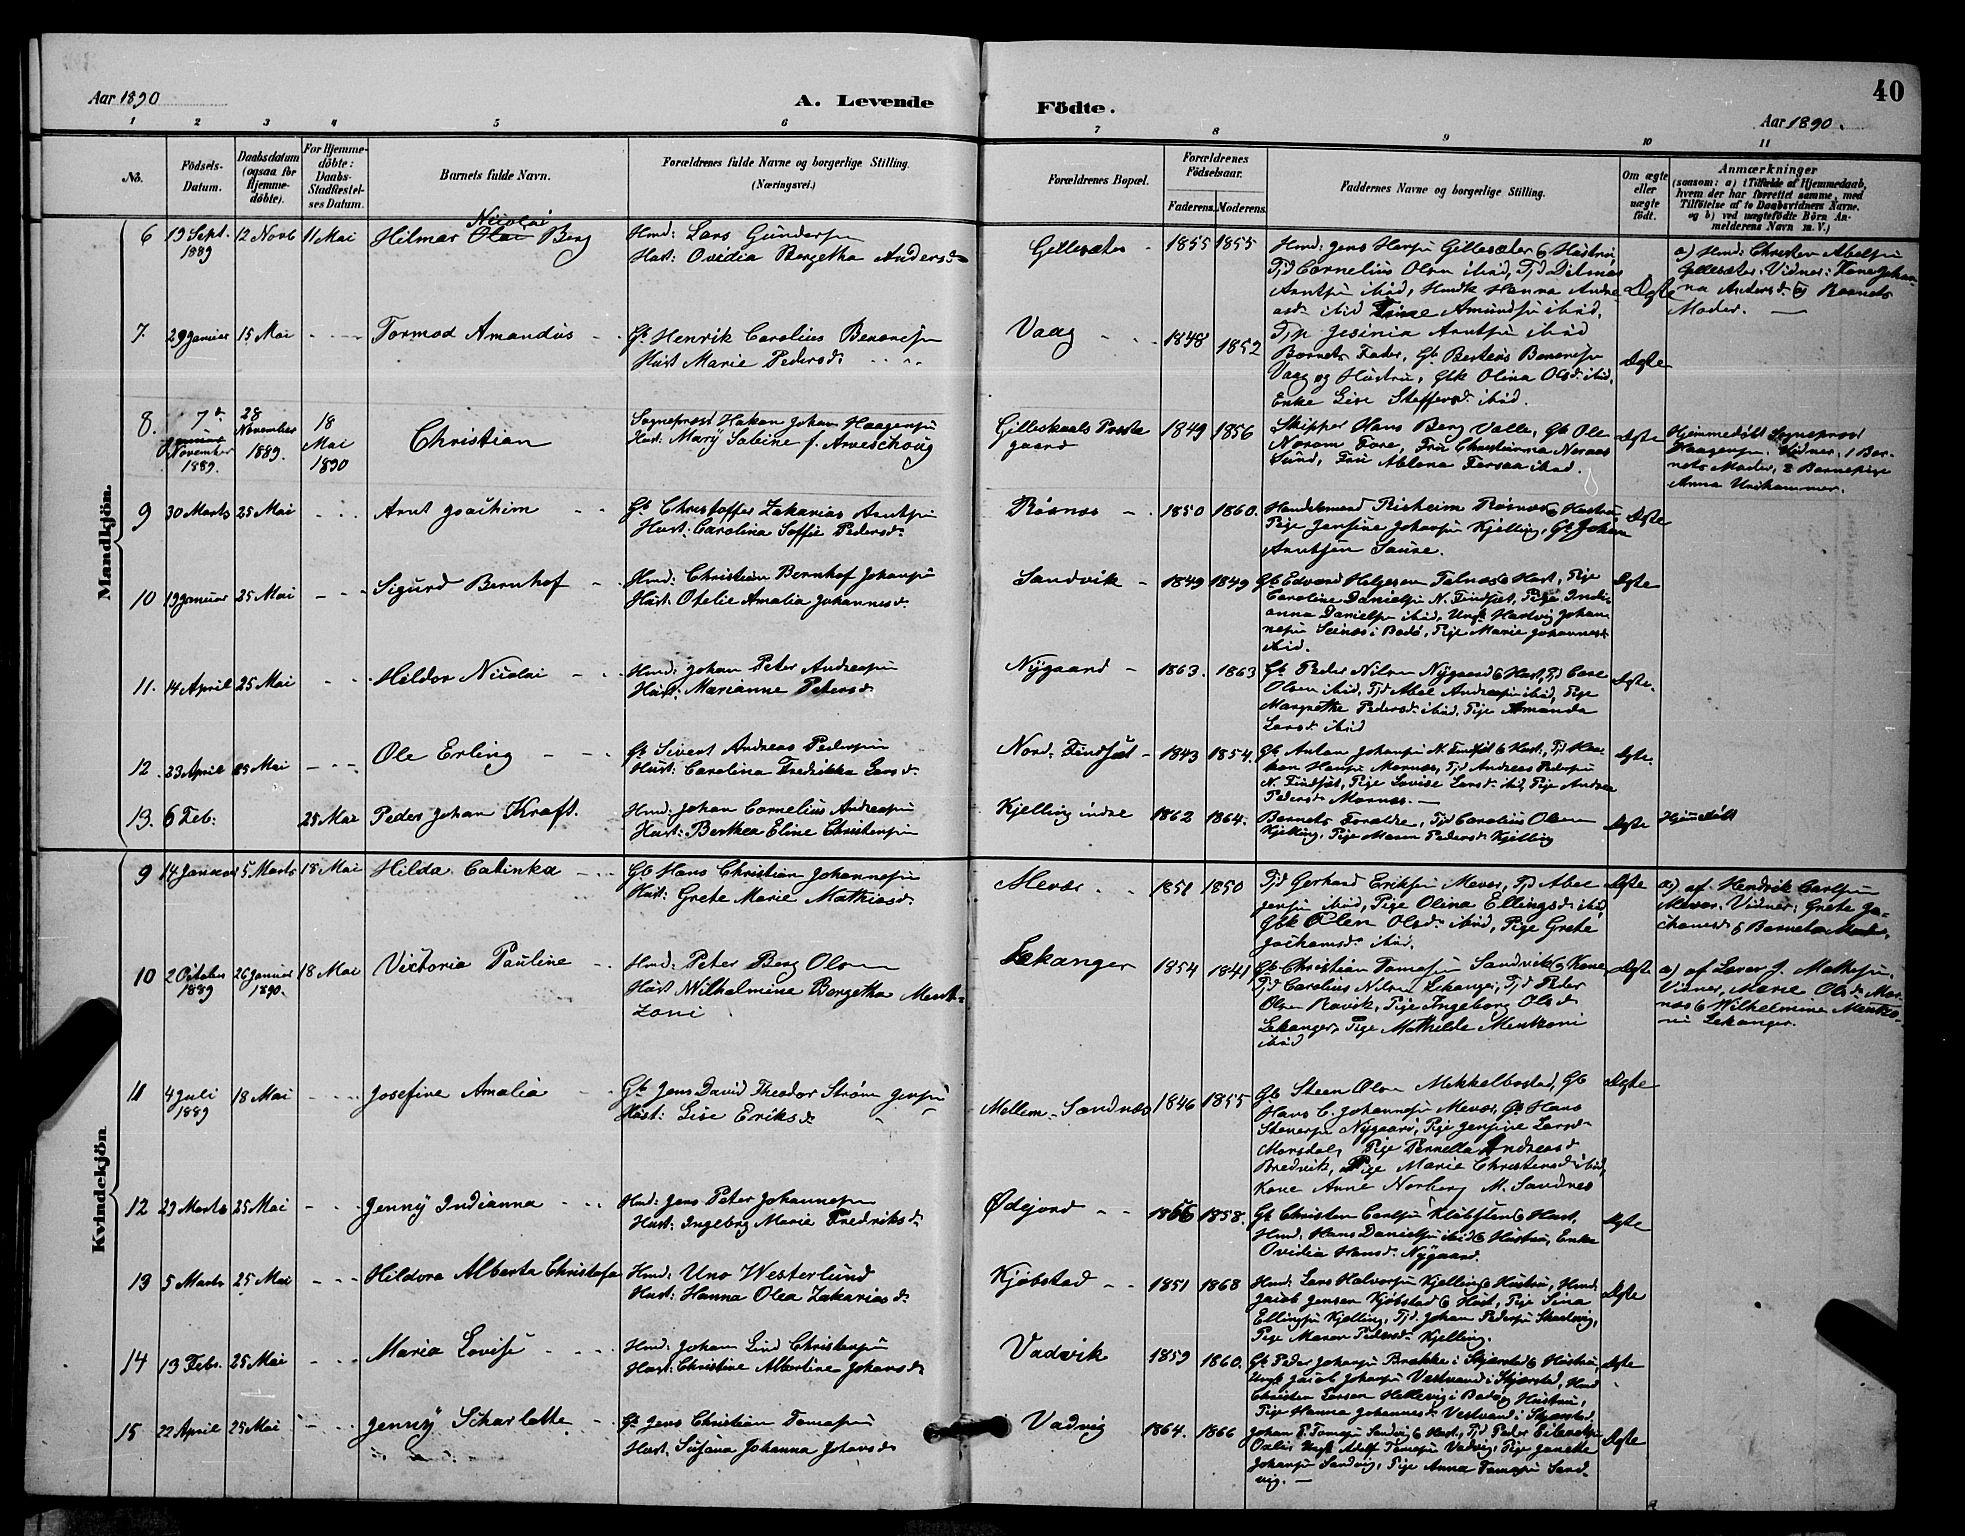 40
Aar 1890
A. Levende
Födte.
Aar 1890.
1 2 3 4 5 6 7 8 9 10 11
No.
Födsels-
Datum.
Daabsdatum
(ogsaa for
Hjemme-
döbte).
For Hjemme-
döbte:
Daabs-
Stadfæstel-
ses Datum.
Barnets fulde Navn.
Forældrenes fulde Navne og borgerlige Stilling.
(Næringsvei.)
Forældrenes Bopæl.
Forældrenes
Födselsaar.
Faderens. Moderens.
Faddernes Navne og borgerlige Stilling.
Om ægte
eller
uægte
födt.
Anmærkninger
(saasom: a) i Tilfælde af Hjemmedaab,
hvem der har forrettet samme, med
Tilföielse af to Daabsvidners Navne.
og b) ved uægtefödte Börn An-
melderens Navn m. V.)
Mandkjön.
6 19 Sept. 1889 12 Novb 11 Mai
Nicolai
Hilmar Olai Berg
Hmd: Lars Gundersen
Hust: Ovidia Bergetha Andersd.
Gillesæter
1855 1855
Hmd: Jens Hansen Gillesæter & Hustru,
Tjd Cornelius Olsen ibid, Tjd Ditmar
Arntsen ibid, Hmdk Hanna Andre
asd. ibid Amundsen ibid,
Tjp Jesinia Arntsen ibid
Ægte
a) Hmd: Christen Abelsen
Gillesæter. Vidner: Kone Johan-
na Andersd. & Barnets
Moder.
7. 29 Januar 15 Mai
Tormod Amandus
Gb Henrik Carolius Benonisen
Hust Marie Pedersd.
Vaag
1848 1852
Barnets Fader, Gb Berteus Benonisen
Vaag og Hustru, Gbk Olina Olsd. ibid,
Enke Lise Steffensd. ibid.
Ægte
8. 7de Januar November 1889. 28 November 1889. 18 Mai 1890
Christian
Sogneprest Hakon Johan Haagensen
Hust. Mary Sabine f. Arveschoug
Gilleskaals Preste
gaard
1849 1856
Skipper Hans Berg Valle, Gb Ole
Norum Fore, Fru Christianna Noraas
Sund, Fru Ablona Forsaa ibid.
Ægte
Hjemmedöbt Sogneprest
Haagensen. Vidner: 1 Bar-
nets Moder, 2 Barnepige
Anna Unhammer.
9 30 Marts 25 Mai
Arnt Joachim
Gb Christoffer Zakarias Arntsen
Hust: Carolina Soffie Pedersd.
Røsnes
1850 1860.
Handelsmand Risheim Røsnes & Hustru
Pige Jensine Johansen Kjelling, Gb Johan
Arntsen Saure.
Ægte
10 19 Januar 25 Mai
Sigurd Bernhof
Hmd: Christian Bernhof Johansen
Hust: Otelie Amalia Johannesd.
Sandvik
1849 1849
Gb Edvard Helgesen Telnes & Hust, Pige
Caroline Danielsen N. Findset, Pige Indi-
anna Danielsen ibid, Ungk Hartvig Johan-
nesen Seines i Bodø, Pige Marie Johannesd.
ibid.
Ægte
11. 14 April 25 Mai
Hildor Nicolai
Hmd: Johan Peter Andreasen
Hust: Marianne Petersd.
Nygaard
1863. 1863
Gb Peder Nilsen Nygaard & Hust, Tjd Carl
Olsen ibid, Tjd Abel Andreasen ibid, Pige
Margrethe Pedersd. ibid, Pige Amanda
Larsd. ibid
Ægte.
12. 23 April 25 Mai
Ole Erling
Gb Sivert Andreas Pedersen
Hust: Carolina Fredrikka Larsd.
Nord. Findset
1843 1854.
Gb Anton Johansen N. Findset & Hust, Tjd Haa-
kon Hansen Mornes, Tjd Andreas Pedersen
N. Findset, Pige Lovise Larsd. ibd, Pige Andrea
Pedersd. Mornes.
Ægte.
13. 6 Feb: 25 Mai
Peder Johan Kraft.
Hmd: Johan Cornelius Andreasen
Hust: Berthea Eline Christensen
Kjelling indre
1862 1864.
Barnets Forældre, Tjd Carolius Olsen
Kjelling, Pige Maren Pedersd. Kjelling
Ægte
Hjemmedöbt
Kvindekjön
9 14 Januar 5 Marts 18 Mai
Hilda Catinka
Gb Hans Christian Johannesen
Hust: Grete Marie Mathiasd.
Mevær
1851 1850
Tjd Gerhard Eriksen Mevær, Tjd Abel
Jensen ibid, Pige Olina Ellingsd. ibid,
Gbk Elen Olsd. ibid, Pige Grete
Jochumsd. ibid.
Ægte
a) af Hendrik Carlsen
Mevær. Vidner: Grete Jo-
chumsd. & Barnets Moder.
10 2 October 1889 26 Januar 1890. 18 Mai
Victoria Pauline
Hmd: Peter Berg Olsen
Hust Wilhelmine Bergetha Ment-
zoni
Lekanger
1854 1841
Gb Christian Tomasen Sandvik & Kone,
Tjd Carolius Nilsen Lekanger, Tjd Peder
Olsen Ravik, Pige Ingeborg Olsd.
Lekanger, Pige Mathilde Mentzoni
ibid
Ægte
a) af Laver J. Mathisen.
Vidner, Marie Olsd. Mor-
næs & Wilhelmine Mentzo-
ni Lekanger.
11 4 Juli 1889 18 Mai
Josefine Amalia
Gb Jens David Theodor Strøm Jensen
Hust: Lise Eriksd.
Mellem-Sandnes
1846 1855
Gb Steen Olsen Mekkelbostad, Gb
Hans C. Johannesen Mevær, Gb Hans
Stenersen Nygaard, Pige Jensine Larsd.
Morsdal, Pige Pernella Andreasd.
Bredvik, Pige Marie Christensd. ibid,
Kone Anne Norberg M. Sandnes
Ægte
12 29 Marts 25 Mai
Jenny Indianna
Hmd: Jens Peter Johannesen
Hust: Ingeborg Marie Fredriksd.
Ødejord
1866 1858.
Gb Christen Carlsen Kløbsten & Hust,
Hmd. Hans Danielsen ibid & Hustru, Enke
Ovidia Hansd. Nygaard.
Ægte
13 5 Marts 25 Mai
Hildora Alberta Christofa
Hmd: Uno Westerlund
Hust: Hanna Olea Zakariasd.
Kjøbstad
1851 1868
Hmd: Lars Halvorsen Kjelling & Hustru, Hmd.
Jacob Jensen Kjøbstad & Hust, Pige Sina
Ellingsen Kjelling, Tjd. Johan Pedersen Skarlvig,
Pige Maren Pedersd. Kjelling.
Ægte
14 13 Febr. 25 Mai
Maria Lovise
Hmd: Johan Lind Christensen
Hust: Christine Albertine Johansd.
Vadvik
1859 1860.
Gb Peder Johansen Brække i Skjerstad & Hustru,
Ungk Jacob Johansen Vestvand i Skjerstad, Hmd
Christen Larsen Hellevig i Bodø & Hustru,
Pige Hanna Johannesd. Vestvand i Skjerstad.
Ægte
15 22 April 25 Mai
Jenny Scharlotte
Gb Jens Christian Tomasen
Hust: Susana Johanna Johansd.
Vadvig
1864. 1866
Johan P. Tomasen Sandvig & Hust, Tjd Peder Eilertsen
Ungk Adolf Tomasen Vadvig, Pige Janette
Johansen Sandvig, Pige Anna Tomasen Sand-
vig.
Ægte